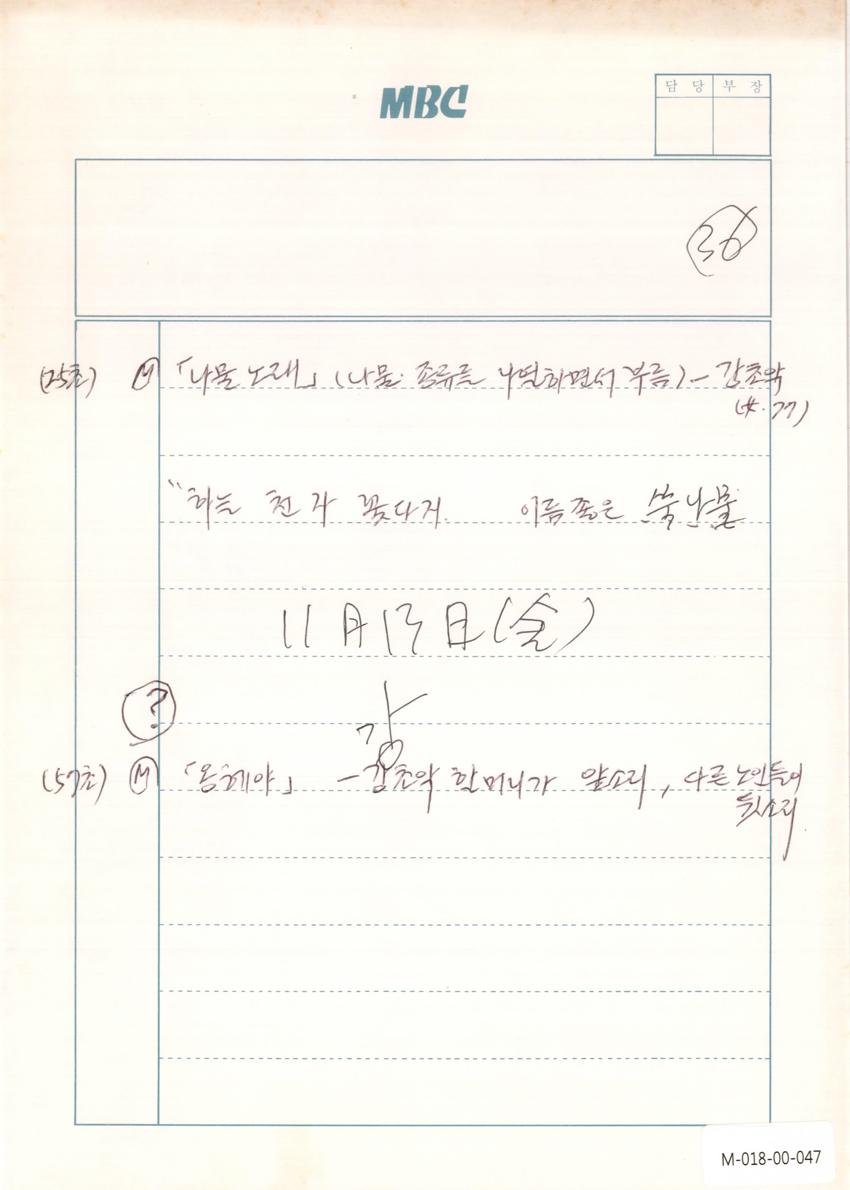 MBC
담당 부장
36
(25초) Ⓜ 「나물 노래」 (나물 종류를 나열하면서 부름) - 강초악
(女. 77)
"하늘 천 자 꽃다지 이름 좋은 쑥나물
11月 13日(金)
강
?
(57초) Ⓜ 「옹헤야」 - 강초악 할머니가 앞소리, 다른 노인들이
뒷소리
M-018-00-047